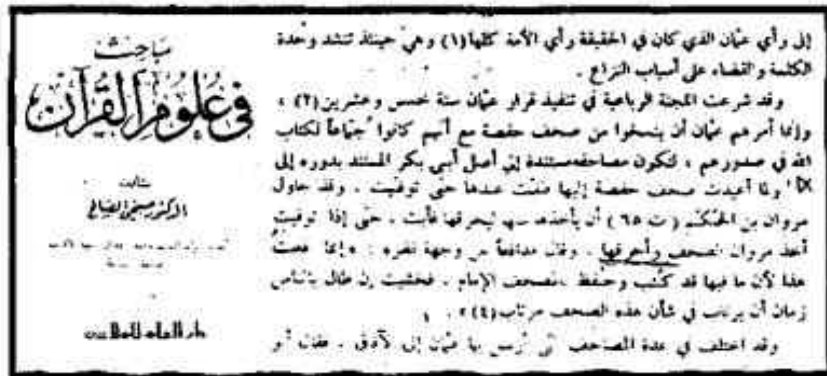 مباحث
في علوم القرآن
تأليف
الدكتور صبحي الصالح
دار العلم للملايين
إلى رأي عثمان الذي كان في الحقيقة رأي الأمة كلها (١) وهي حينئذ تنشد وحدة
الكلمة والقضاء على أسباب النزاع .
وقد شرعت اللجنة الرباعية في تنفيذ قرار عثمان سنة خمس وعشرين (٢) ،
وإنما أمرهم عثمان أن ينسخوا من صحف حفصة مع أنهم كانوا جماعاً لكتاب
الله في صدورهم ، لتكون مصاحفه مستندة إلى أصل أبي بكر المستند بدوره إلى
ولما أعيدت صحف حفصة إليها ظلت عندها حتى توفيت . وقد حاول
مروان بن الحكم ( ت ٦٥ ) أن يأخذها منها ليحرقها فأبت ، حتى إذا توفيت
أخذ مروان الصحف وأحرقها ، وقال مدافعاً عن وجهة نظره : « إنما فعلت
هذا لأن ما فيها قد كتب وحفظ بالمصحف الإمام ، فخشيت إن طال بالناس
زمان أن يرتاب في شأن هذه الصحف مرتاب (٤) » .
وقد اختلف في عدة المصاحف التي أرسل بها عثمان إلى الآفاق ، فقال أبو